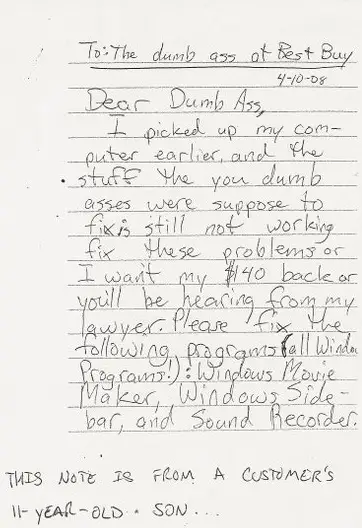 To: The dumb ass at Best Buy
4-10-08
Dear Dumb Ass,
I picked up my com-
puter earlier, and the
stuff the you dumb
asses were suppose to
fix is still not working
fix these problems or
I want my $140 back or
you'll be hearing from my
lawyer. Please fix the
following, programs (all Window
Programs!): Windows Movie
Maker, Windows Side-
bar, and Sound Recorder.
THIS NOTE IS FROM A CUSTOMER'S
11-YEAR-OLD SON...